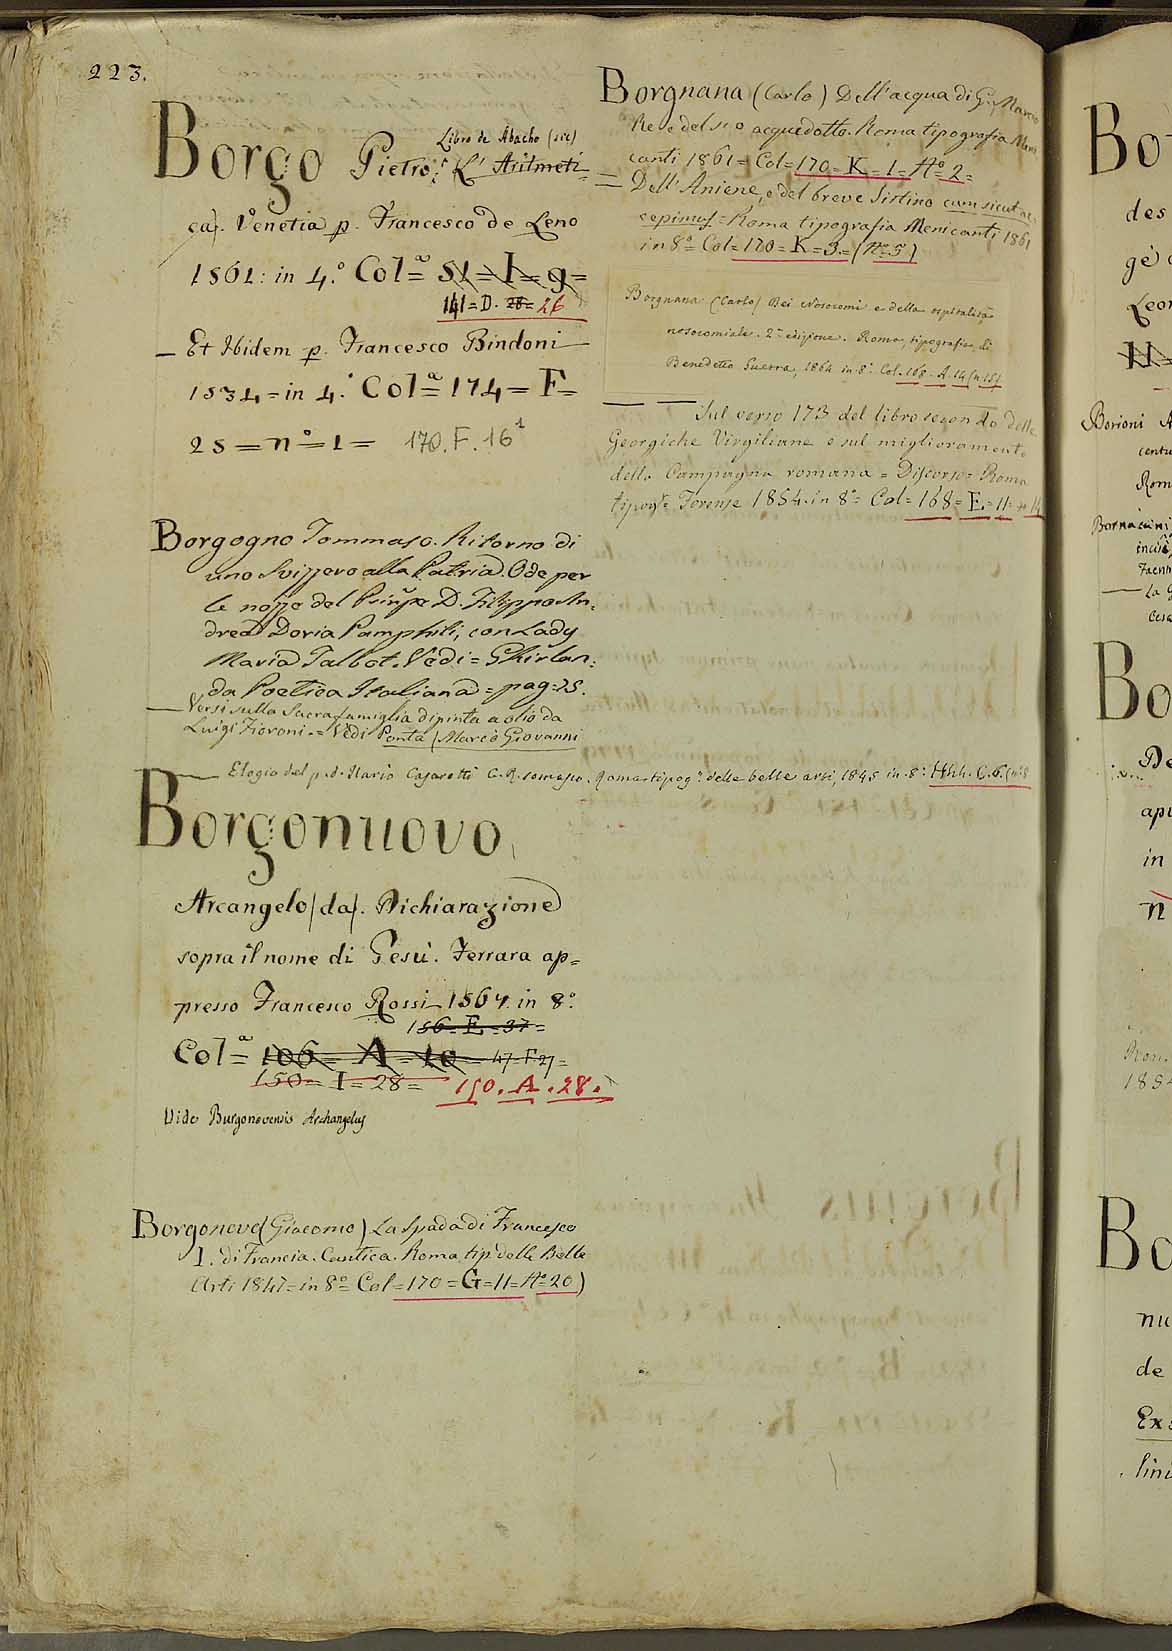 223.
Borgo Pietro. L'Aritmeti=
Libro de Abacho (sic)
ca). Venetia p. Francesco de Leno
1561: in 4.° Col.ª = 51 = I = 9 =
141 = D. 28 = 26
— Et Ibidem p. Francesco Bindoni
1534 = in 4.° Col.ª = 174 = F =
25 = n.° = 1 = 170. F. 16¹
Borgogno Tommaso. Ritorno di
uno Svizzero alla Patria. Ode per
le nozze del Prinpe D. Filippo An=
drea Doria Pamphili, con Lady
Maria Talbot. Vedi = Ghirlan=
da Poetica Italiana = pag = 25.
— Versi sulla Sacra famiglia dipinta a olio da
Luigi Fioroni. = Vedi Ponta (Marco Giovanni
— Elogio del p. d. Ilario Casarotti C. R. somasco. Roma tipog.ª delle belle arti, 1845 in 8.° Hhh. C. 6. (n.8
Borgonuovo
Arcangelo (da). Dichiarazione
sopra il nome di Gesù. Ferrara ap=
presso Francesco Rossi 1564. in 8°.
156 = E = 37 =
Col.ª = 106 = A = 10 = 47 = F. 27 =
150 = I = 28 = 150. A. 28.
Vide Burgonovensis Archangelus
Borgonovo (Giacomo) La Spada di Francesco
I. di Francia. Cantica. Roma tip. delle Belle
Arti 1847 = in 8° = Col = 170 = G = 11 = N° 20)
Borgnana (Carlo) Dell'acqua di Q. Marcio
Re e del suo acquedotto. Roma tipografia Meni
canti 1861 = Col = 170 = K = 1 = N° = 2 =
= Dell'Aniene, e del breve Sistino cum sicut ac
cepimus = Roma tipografia Menicanti 1861
in 8° = Col = 170 = K = 3 = (N° = 5)
Borgnana (Carlo) Dei Nosocomi e della ospitalità
nosocomiale. 2ª edizione. Roma, tipografia di
Benedetto Guerra, 1864 in 8.° Col. 168. A. 14 (n.18)
— — Sul verso 173 del libro secondo delle
Georgiche Virgiliane e sul miglioramento
della Campagna romana = Discorso = Roma
tipogª Forense 1854 in 8° = Col = 168 = E = 11 = n 14
Bo
des
gè
Leon
Borioni A
centu
Rom
Bornaccini
incis
Faenn
— La G
Cese
Bo
De
apu
in
n
Rom.
185
Bo
nu
de
Ex
lini